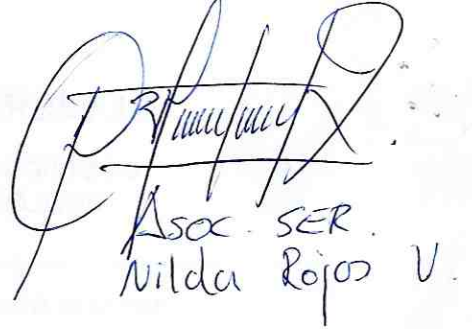 Asoc. SER.
Nilda Rojos V.